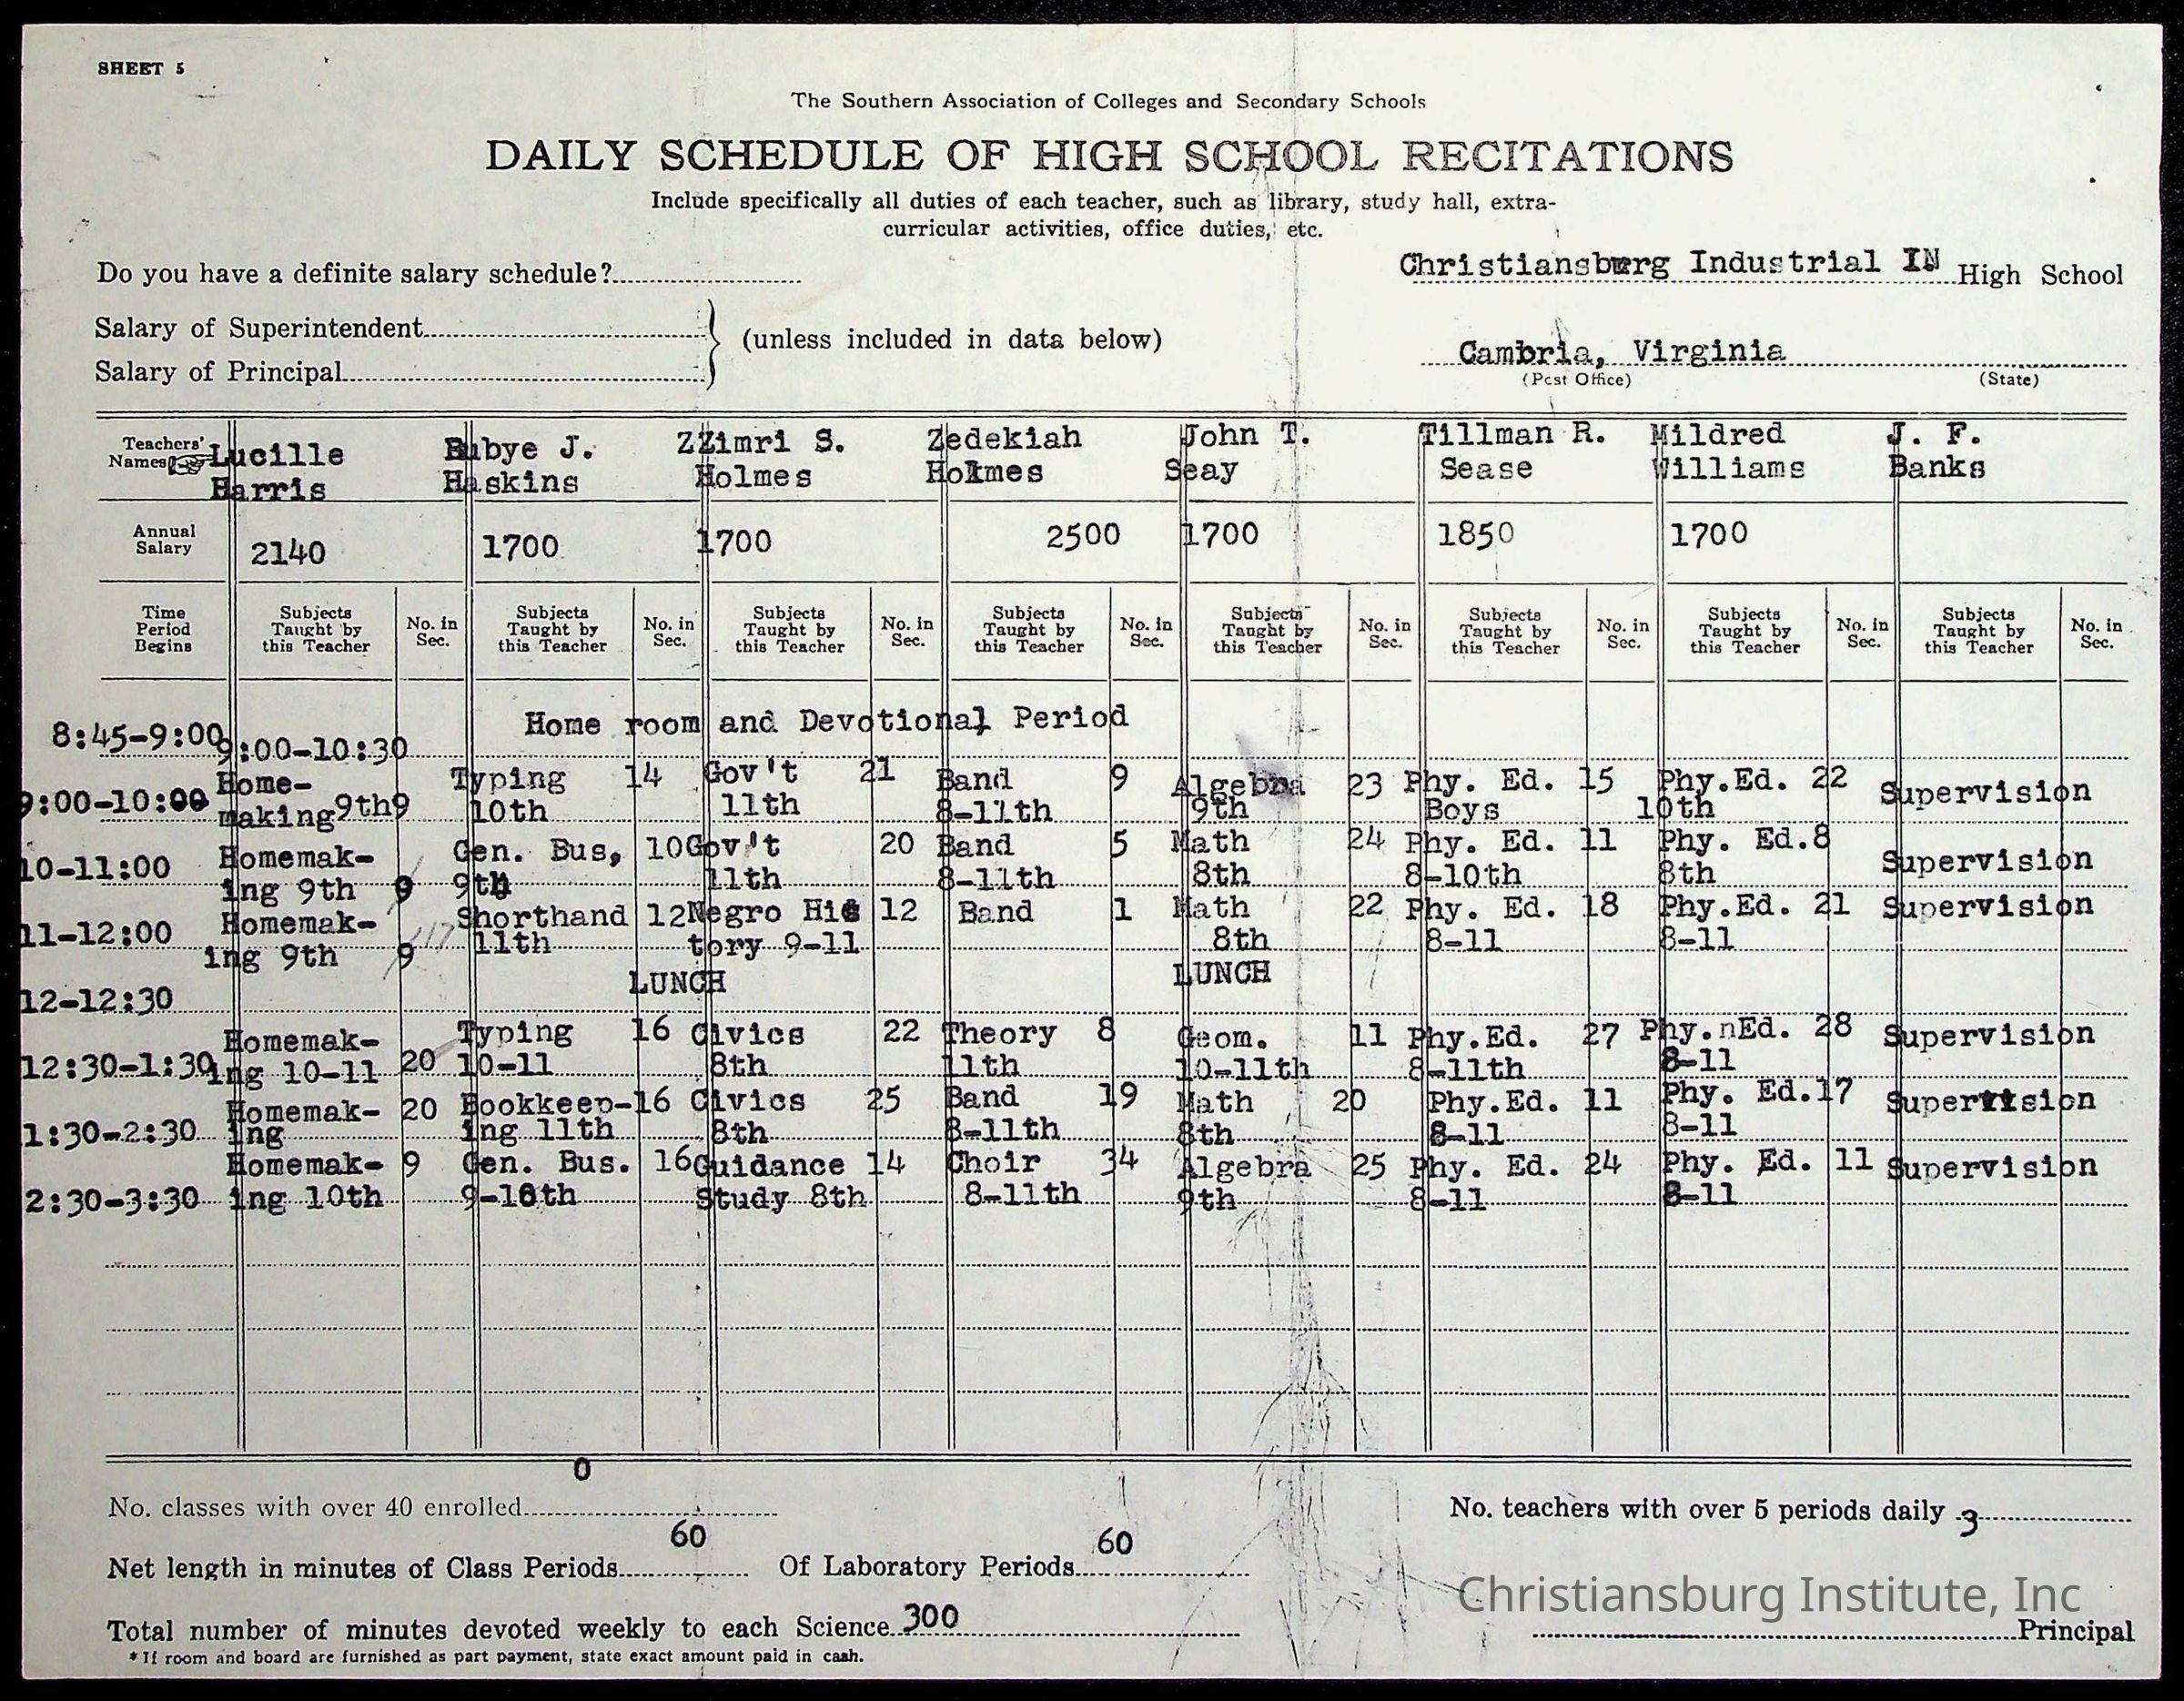 SHEET 5
The Southern Association of Colleges and Secondary Schools
DAILY SCHEDULE OF HIGH SCHOOL RECITATIONS
Include specifically all duties of each teacher, such as library, study hall, extra-
curricular activities, office duties, etc.
Do you have a definite salary schedule?
Christiansburg Industrial IN High School
Salary of Superintendent
Salary of Principal
(unless included in data below)
Cambria, Virginia
(Post Office) (State)
Teachers' Names Lucille Rubye J. ZZimri S. Zedekiah John T. Tillman R. Mildred J. F.
Harris Haskins Holmes Holmes Seay Sease Williams Banks
Annual Salary 2140 1700 1700 2500 1700 1850 1700
Time Subjects Subjects Subjects Subjects Subjects Subjects Subjects Subjects
Period Taught by No. in Taught by No. in Taught by No. in Taught by No. in Taught by No. in Taught by No. in Taught by No. in Taught by No. in
Begins this Teacher Sec. this Teacher Sec. this Teacher Sec. this Teacher Sec. this Teacher Sec. this Teacher Sec. this Teacher Sec. this Teacher Sec.
8:45-9:00 Home room and Devotional Period
9:00-10:30
Home- Typing 14 Gov't 21 Band 9 Algebra 23 Phy. Ed. 15 Phy.Ed. 22 Supervision
9:00-10:00 making 9th 9 10th 11th 8-11th 9th Boys 10th
Homemak- Gen. Bus, 10 Gov't 20 Band 5 Math 24 Phy. Ed. 11 Phy. Ed. 8 Supervision
10-11:00 ing 9th 9 9th 11th 8-11th 8th 8-10th 8th
Homemak- Shorthand 12 Negro His 12 Band 1 Math 22 Phy. Ed. 18 Phy.Ed. 21 Supervision
11-12:00 ing 9th 9 11th tory 9-11 8th 8-11 8-11
12-12:30 LUNCH LUNCH
Homemak- Typing 16 Civics 22 Theory 8 Geom. 11 Phy.Ed. 27 Phy.nEd. 28 Supervision
12:30-1:30 ing 10-11 20 10-11 8th 11th 10-11th 8-11th 8-11
Homemak- 20 Bookkeep- 16 Civics 25 Band 19 Math 20 Phy.Ed. 11 Phy. Ed. 17 Supervision
1:30-2:30 ing ing 11th 8th 8-11th 8th 8-11 8-11
Homemak- 9 Gen. Bus. 16 Guidance 14 Choir 34 Algebra 25 Phy. Ed. 24 Phy. Ed. 11 Supervision
2:30-3:30 ing 10th 9-10th Study 8th 8-11th 9th 8-11 8-11
No. classes with over 40 enrolled 0
No. teachers with over 5 periods daily 3
Net length in minutes of Class Periods 60 Of Laboratory Periods 60
Christiansburg Institute, Inc
Total number of minutes devoted weekly to each Science 300
Principal
* If room and board are furnished as part payment, state exact amount paid in cash.